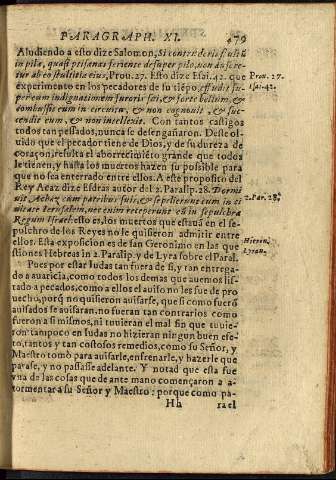 PARAGRAPH. XI. 479
Aludiendo a esto dize Salomon, Si contuderis stultũ
in pila, quasi ptisanas feriente desuper pilo, non aufere-
tur ab eo stultitia eius, Prou. 27. Esto dize Esai. 42. que
experimento en los pecadores de su tiẽpo, effudit su-
per eum indignationem furoris sui, & forte bellum, &
combussit eum in circuitu, & non cognouit, & suc-
cendit eum, & non intellexit. Con tantos castigos
todos tan pessados, nunca se desengañaron. Deste ol-
uido que el pecador tiene de Dios, y de su dureza de
coraçon, resulta el aborrecimiẽto grande que todos
le tienen, y hasta los muertos hazen su possible para
que no sea enterrado entre ellos. A este proposito del
Rey Acaz dize Esdras autor del 2. Paralip. 28. Dormi-
uit Achaz cum patribus suis, & sepelierunt eum in ci
uitate Ierusalem, nec enim receperunt eũ in sepulchra
Regum Israel: esto es, los muertos que estauã en el se-
pulchro de los Reyes no le quisieron admitir entre
ellos. Esta exposicion es de san Geronimo en las que
stiones Hebreas in 2. Paralip. y de Lyra sobre el Paral.
Pues por estar Iudas tan fuera de si, y tan entrega-
do a auaricia, como todos los demas que auemos lis-
tado a pecados, como a ellos el auiso no les fue de pro
uecho, porq̃ no quisieron auisarse, que si como fuerõ
auisados se auisaran, no fueran tan contrarios como
fueron a si mismos, ni tuuieran el mal fin que tuuie-
ron: tampoco en Iudas no hizieran ningun buen efe-
to, tantos y tan costosos remedios, como su Señor, y
Maestro tomò para auisarle, enfrenarle, y hazerle que
parase, y no passasse adelante. Y notad que esta fue
vna de las cosas que de ante mano començaron a a-
tormentar a su Señor y Maestro: porque como pa-
Hh rael
Prou. 27.
Isai. 42.
2. Par. 28.
Hieron.
Lyran.